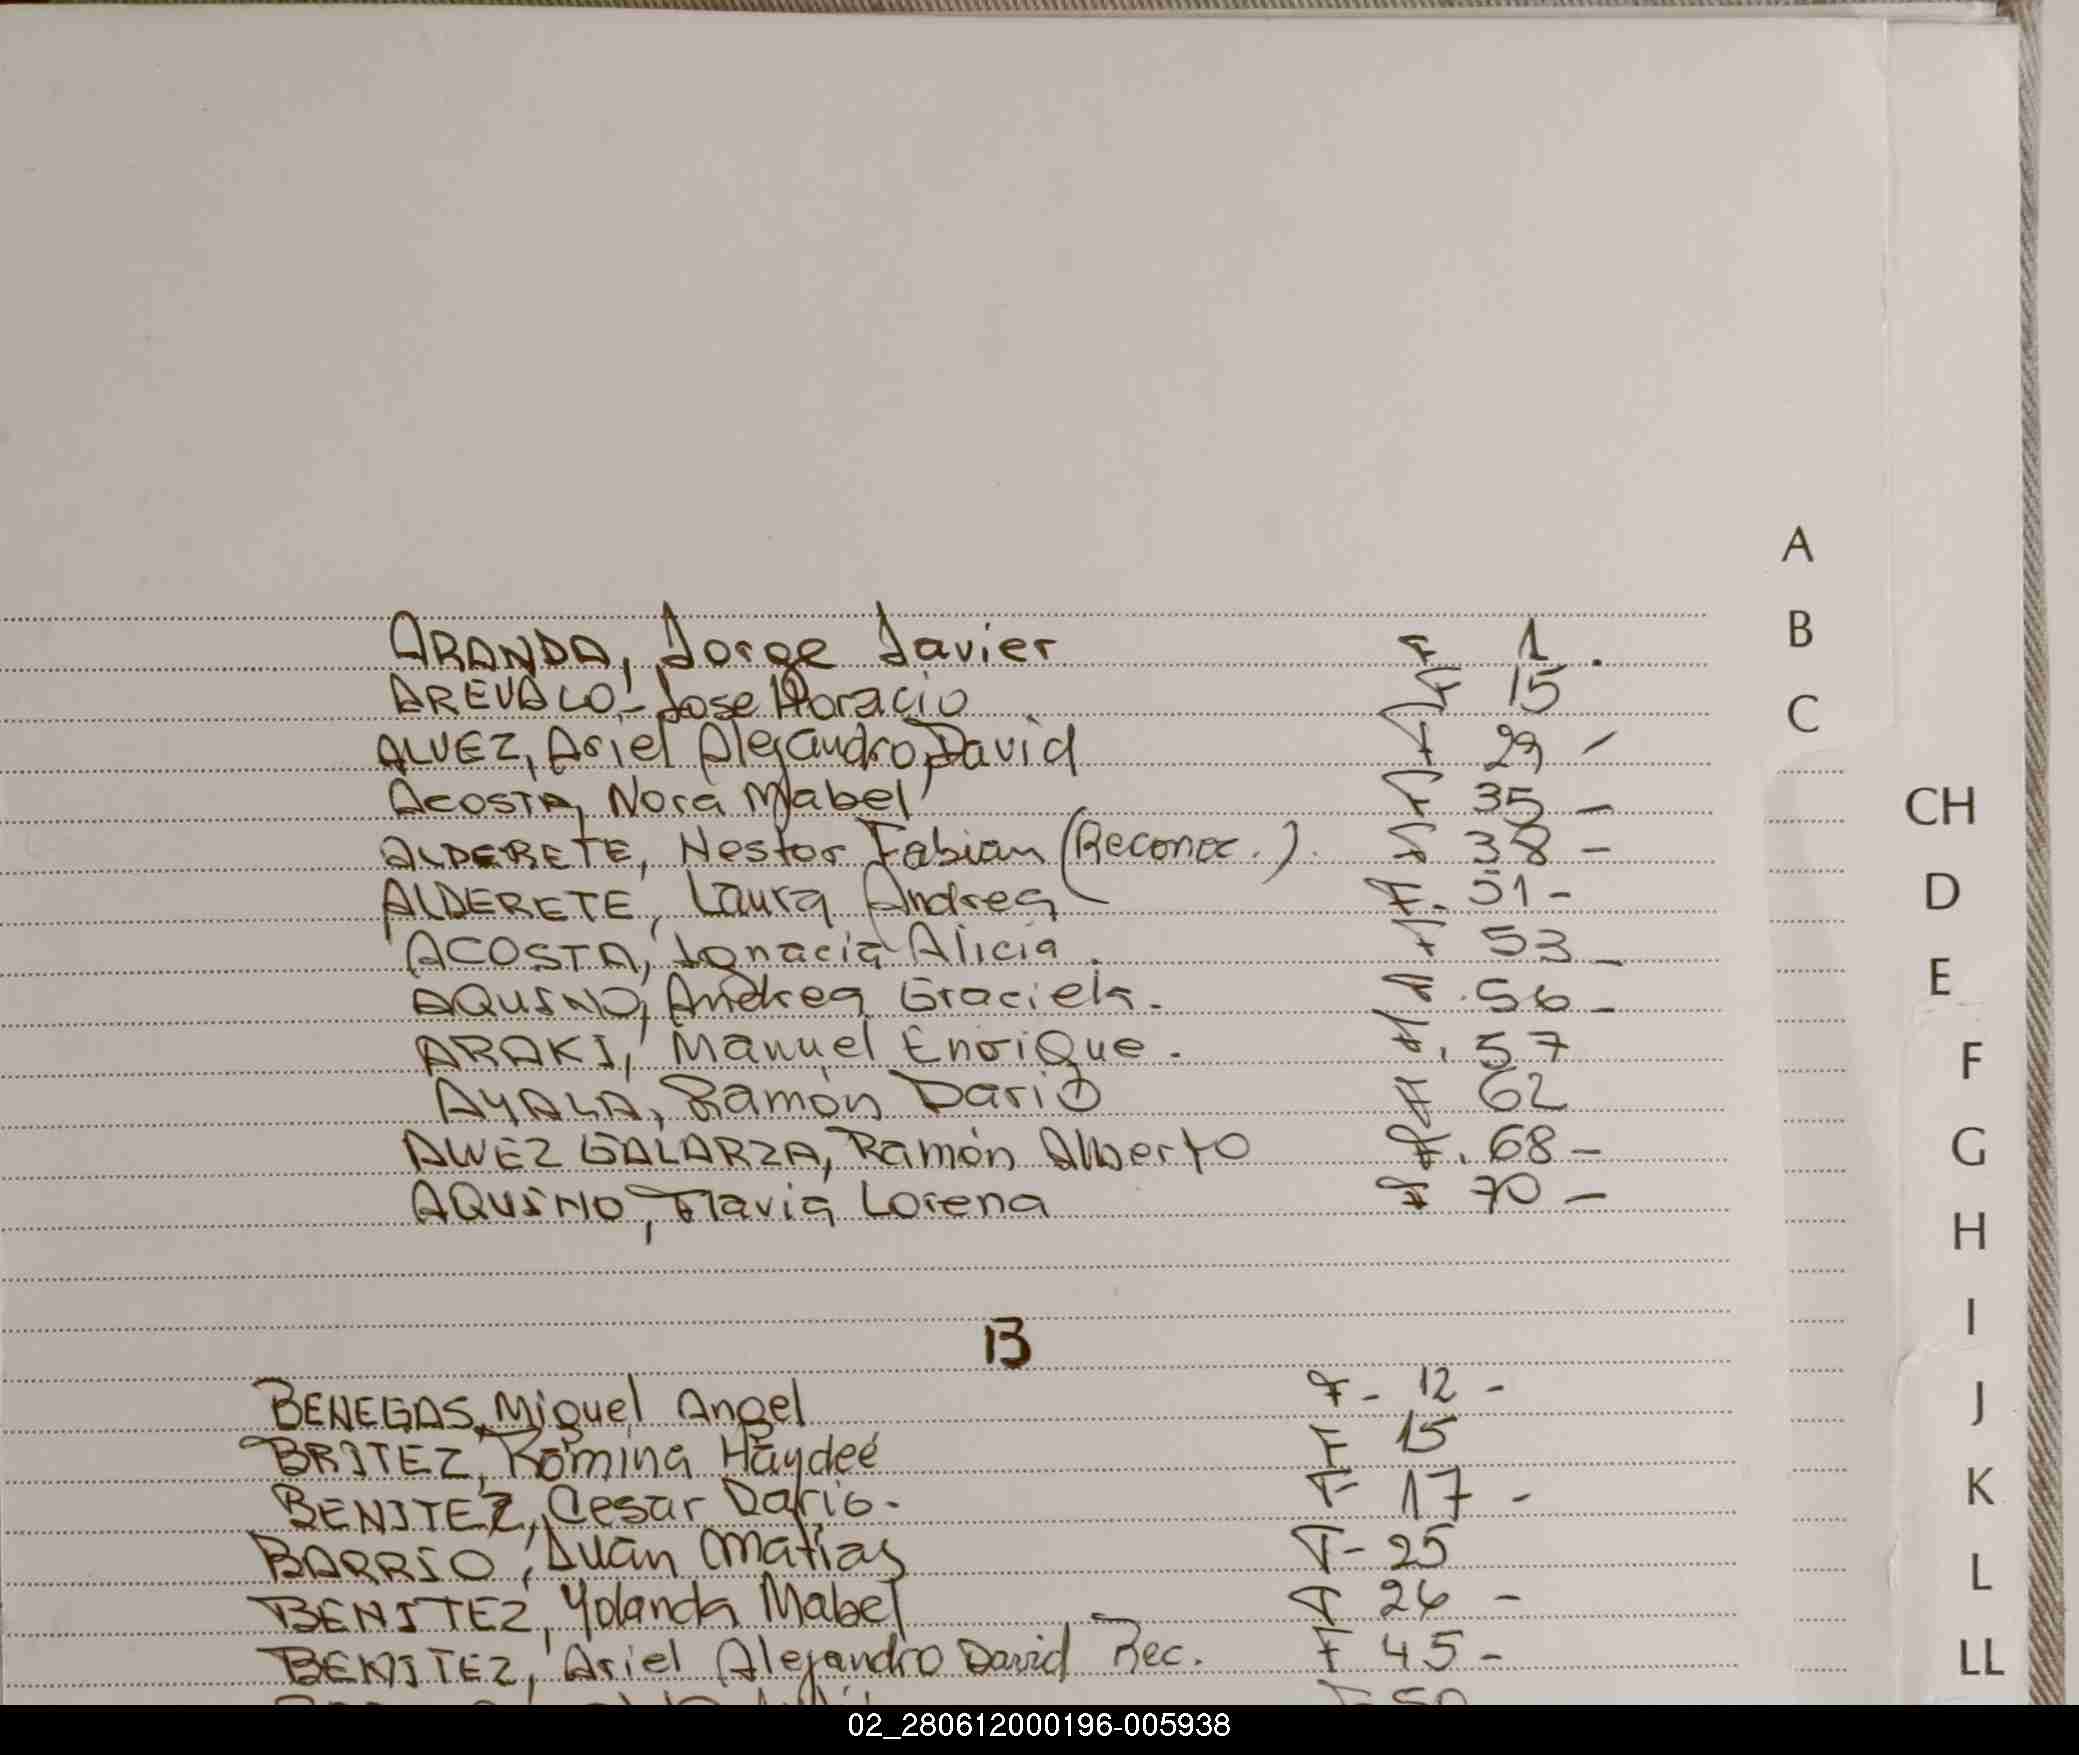 ARANDA, Jorge Javier F 1.
AREVALO, Jose Horacio F 15
ALVEZ, Ariel Alejandro David F 29 -
Acosta, Nora Mabel F 35 -
ALDERETE, Nestor Fabian (Reconoc.). F 38 -
ALDERETE, Laura Andrea F. 51 -
ACOSTA, Ignacia Alicia. F 53 -
AQUINO, Andrea Graciela. F. 56 -
ARAKI, Manuel Enrique. F. 57
AYALA, Ramón Darío F 62
ALVEZ GALARZA, Ramón Alberto F. 68 -
AQUINO, Flavia Lorena F 70 -
B
BENEGAS, Miguel Angel F - 12 -
BRITEZ, Romina Haydeé F 15
BENITEZ, Cesar Dario. F 17 -
BARRIO, Juan Matías F - 25
BENITEZ, Yolanda Mabel F 26 -
BENITEZ, Ariel Alejandro David Rec. F 45 -
A
B
C
CH
D
E
F
G
H
I
J
K
L
LL
02_280612000196-005938